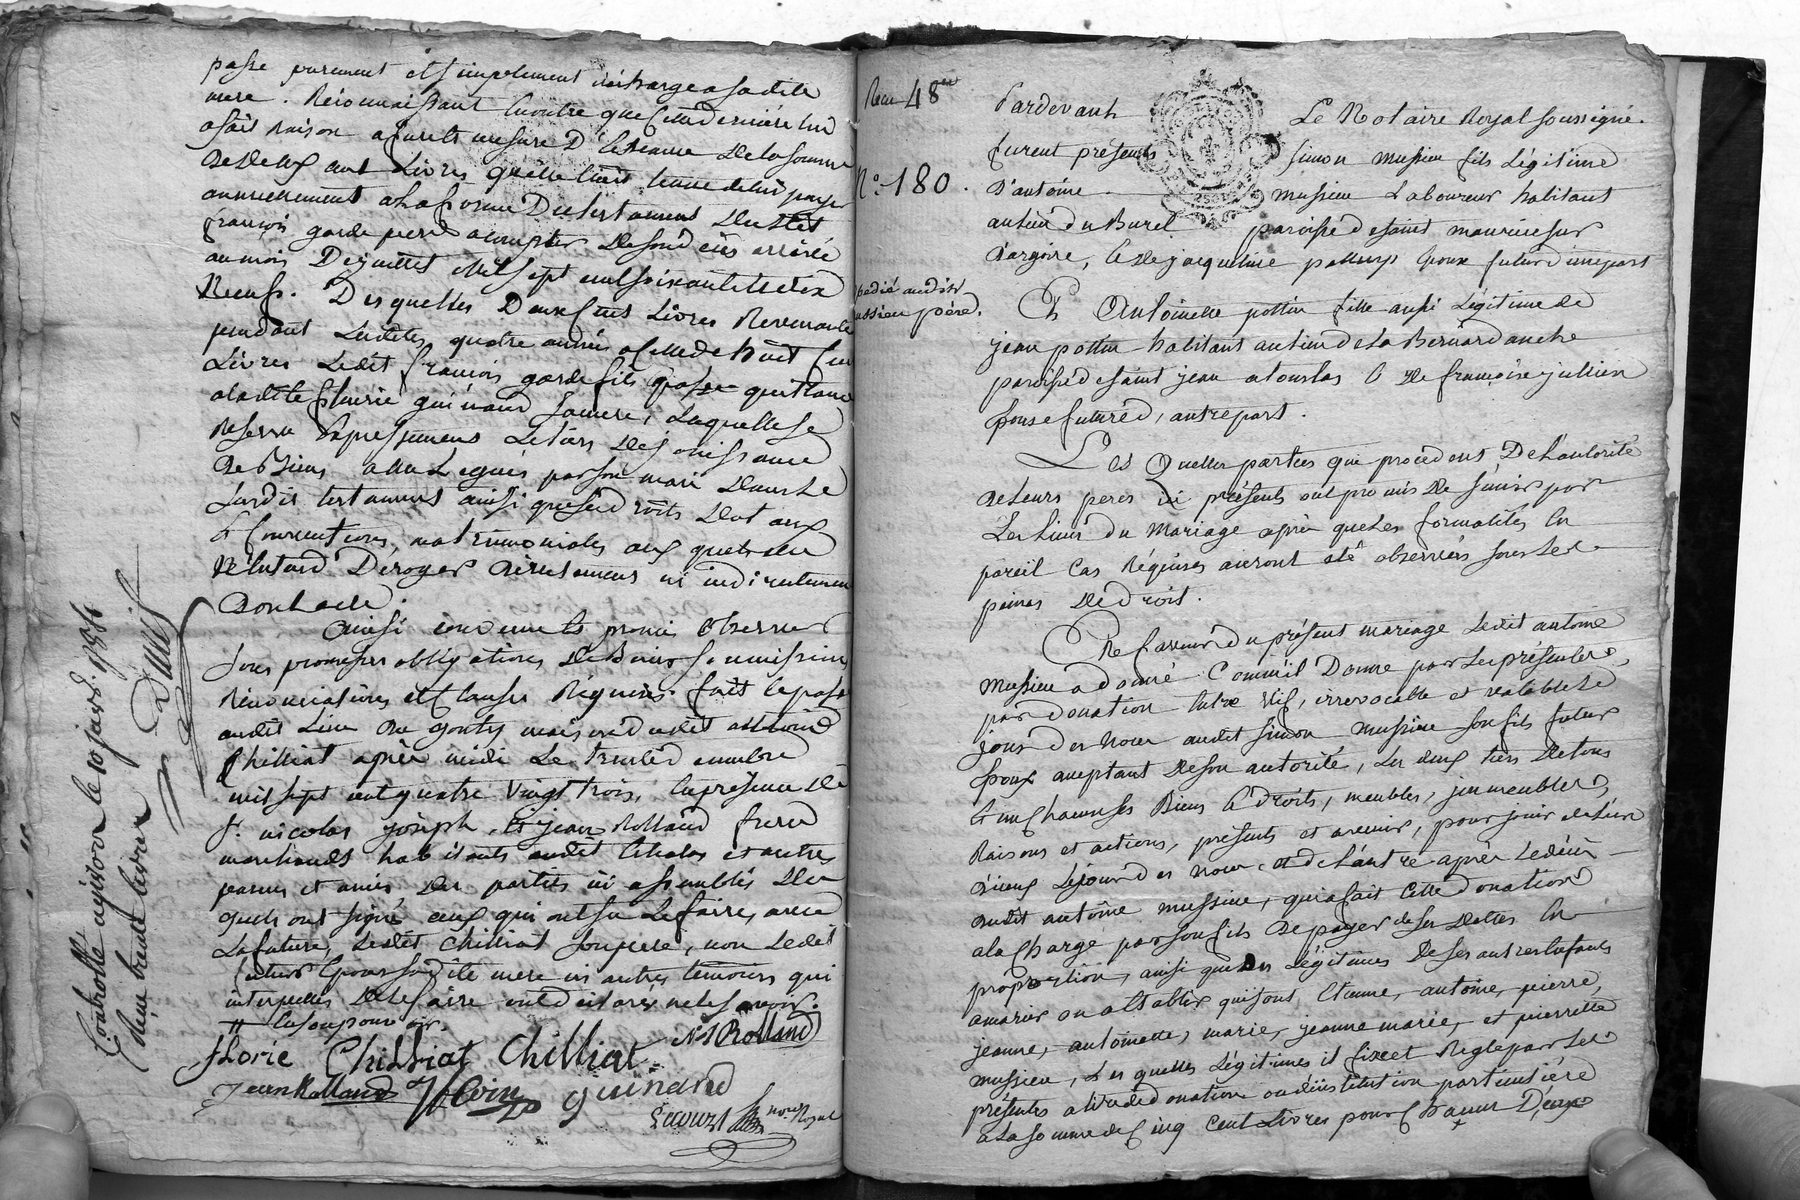 passe purement et simplement décharge a sadite
mere. Réconnaissant encontre que cette derniére lui
a fait raison a fur et mesure D'echeance de la somme
de deux cent Livres qu'elle était tenue de lui payer
annuellement a la forme Du testament Dudit
françois garde pere a compter de son déces arrivé
au mois De juillet Mil sept cent soixante et dix
Neuf. Desquelles Deux Cents Livres Revenante
pendant lesdites quatre années a celle de huit Cent
Livres Ledit françois garde fils passe quittance
a ladite fleurie guinand sa mere, Laquelle se
reserve Expressement Le tiers des jouissance
de Biens a elle Legués par son mari dans le
susdit testament ainsi que ses droits dotaux
et Conventions matrimoniales auxquels elle
N'Entand Deroger directement ni indirectement
Dont acte.
Ainsi convenu et promis observer
sous promesses obligations de Biens soumissions
Rénonciations et Clauses Réquises fait et passé
audit Lieu de maison dudit antoine
Chilliat aprés midi Le trente decembre
mil sept cent quatre Vingt trois, En présence de
Sr. nicolas joseph et jean Rolland freres
marchands habitants audit et autres
parens et amis des parties ici assemblés Les
quels ont signé ceux qui ont su Le faire, avec
La future, Ledit Chilliat son pere, non Ledit
futur Epoux sadite mere ni autres temoins qui
interpellés de le faire ont déclaré ne le savoir
florie Chilliat Chilliat NJ Rolland
Jean Rolland guinand
nore Royal
Controllé a le 10 janv. 1784
Reçu trente livres
Reçu 48
No. 180.
Expédié audit
mussieu pére.
Pardevant Le Notaire Royal soussigné.
furent présents simon mussieu fils Légitime
D'antoine mussieu Laboureur habitant
au lieu du Buret paroisse de saint maurice sur
Dargoire, et de jacqueline Epoux futur d'une part
Et Antoinette pottin fille aussi Légitime de
jean pottin habitant au lieu de la Bernardanche
paroisse de saint jean a touslas et de françoise jullien
Epouse future d'autre part.
Les Quelles parties qui procedent De l'autorité
de leurs peres ici présents ont promis de s'unir par
Les liens du Mariage aprés que les formalités en
pareil Cas Réquises auront été observées sous les
peines de droit.
En faveur du présent mariage Ledit antoine
Mussieu a donné Comme il Donne par les présentes
par donation Entre Vif, irrevocable et valable le
jour d'es Noces audit simon mussieu son fils futur
Epoux acceptant de son autorité, Les deux tiers de tous
Et un Chacun ses Biens et droits, meubles, immeubles,
Raisons et actions, présents et avenir, pour jouir de l'un
d'iceux Le jour d'es Noces et de l'autre aprés Le décés
dudit antoine mussieu, qui a fait cette donation
a la Charge par son fils de payer de ses dettes En
proportion, ainsi que des Légitimes De ses autres Enfants
a marier ou a Etablir qui sont Etienne, antoine, pierre,
jeanne, antoinette, marie, jeanne marie, et pierrette
mussieu, Les quelles Légitimes il fixe et Regle par Les
présentes a titre de donation ou d'institution particuliére
a la somme de Cinq Cent Livres pour Chacun D'eux